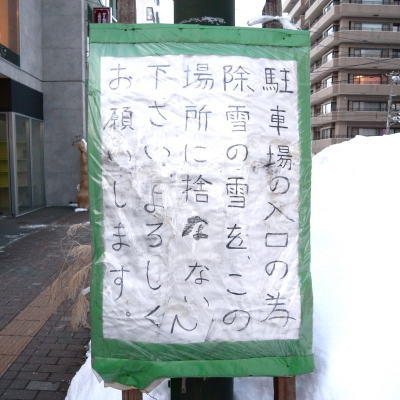 駐車場の入口の為
除雪の雪を、この
場所に捨なないで
下さい、よろしく
お願いします。